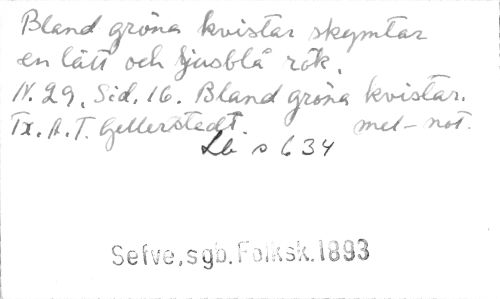 Bland gröna kvistar skymtar
en lätt och ljusblå rök.
N. 29, Sid. 16. Bland gröna kvistar.
Tx. A. T. Gellerstedt. mel-not.
Lb s 634
Sefve, sgb. Folksk. 1893